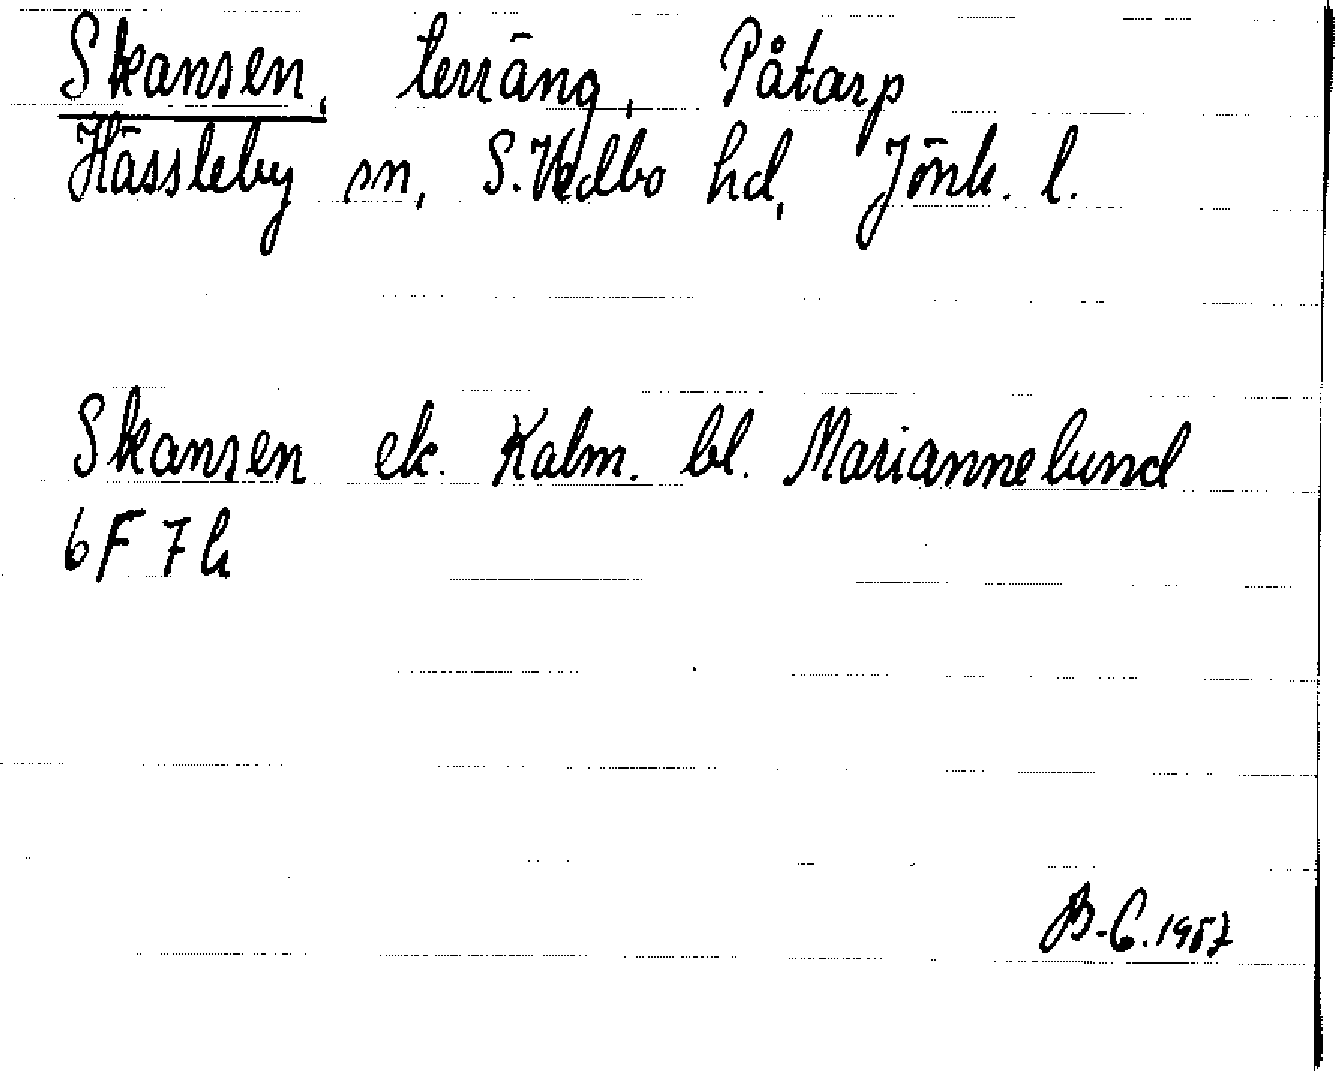 Skansen, terräng, Påtarp
Hässleby sn, S.Vedbo hd, Jönk. l.
Skansen ek. Kalm. bl. Mariannelund
6F 7h
B-C.1957